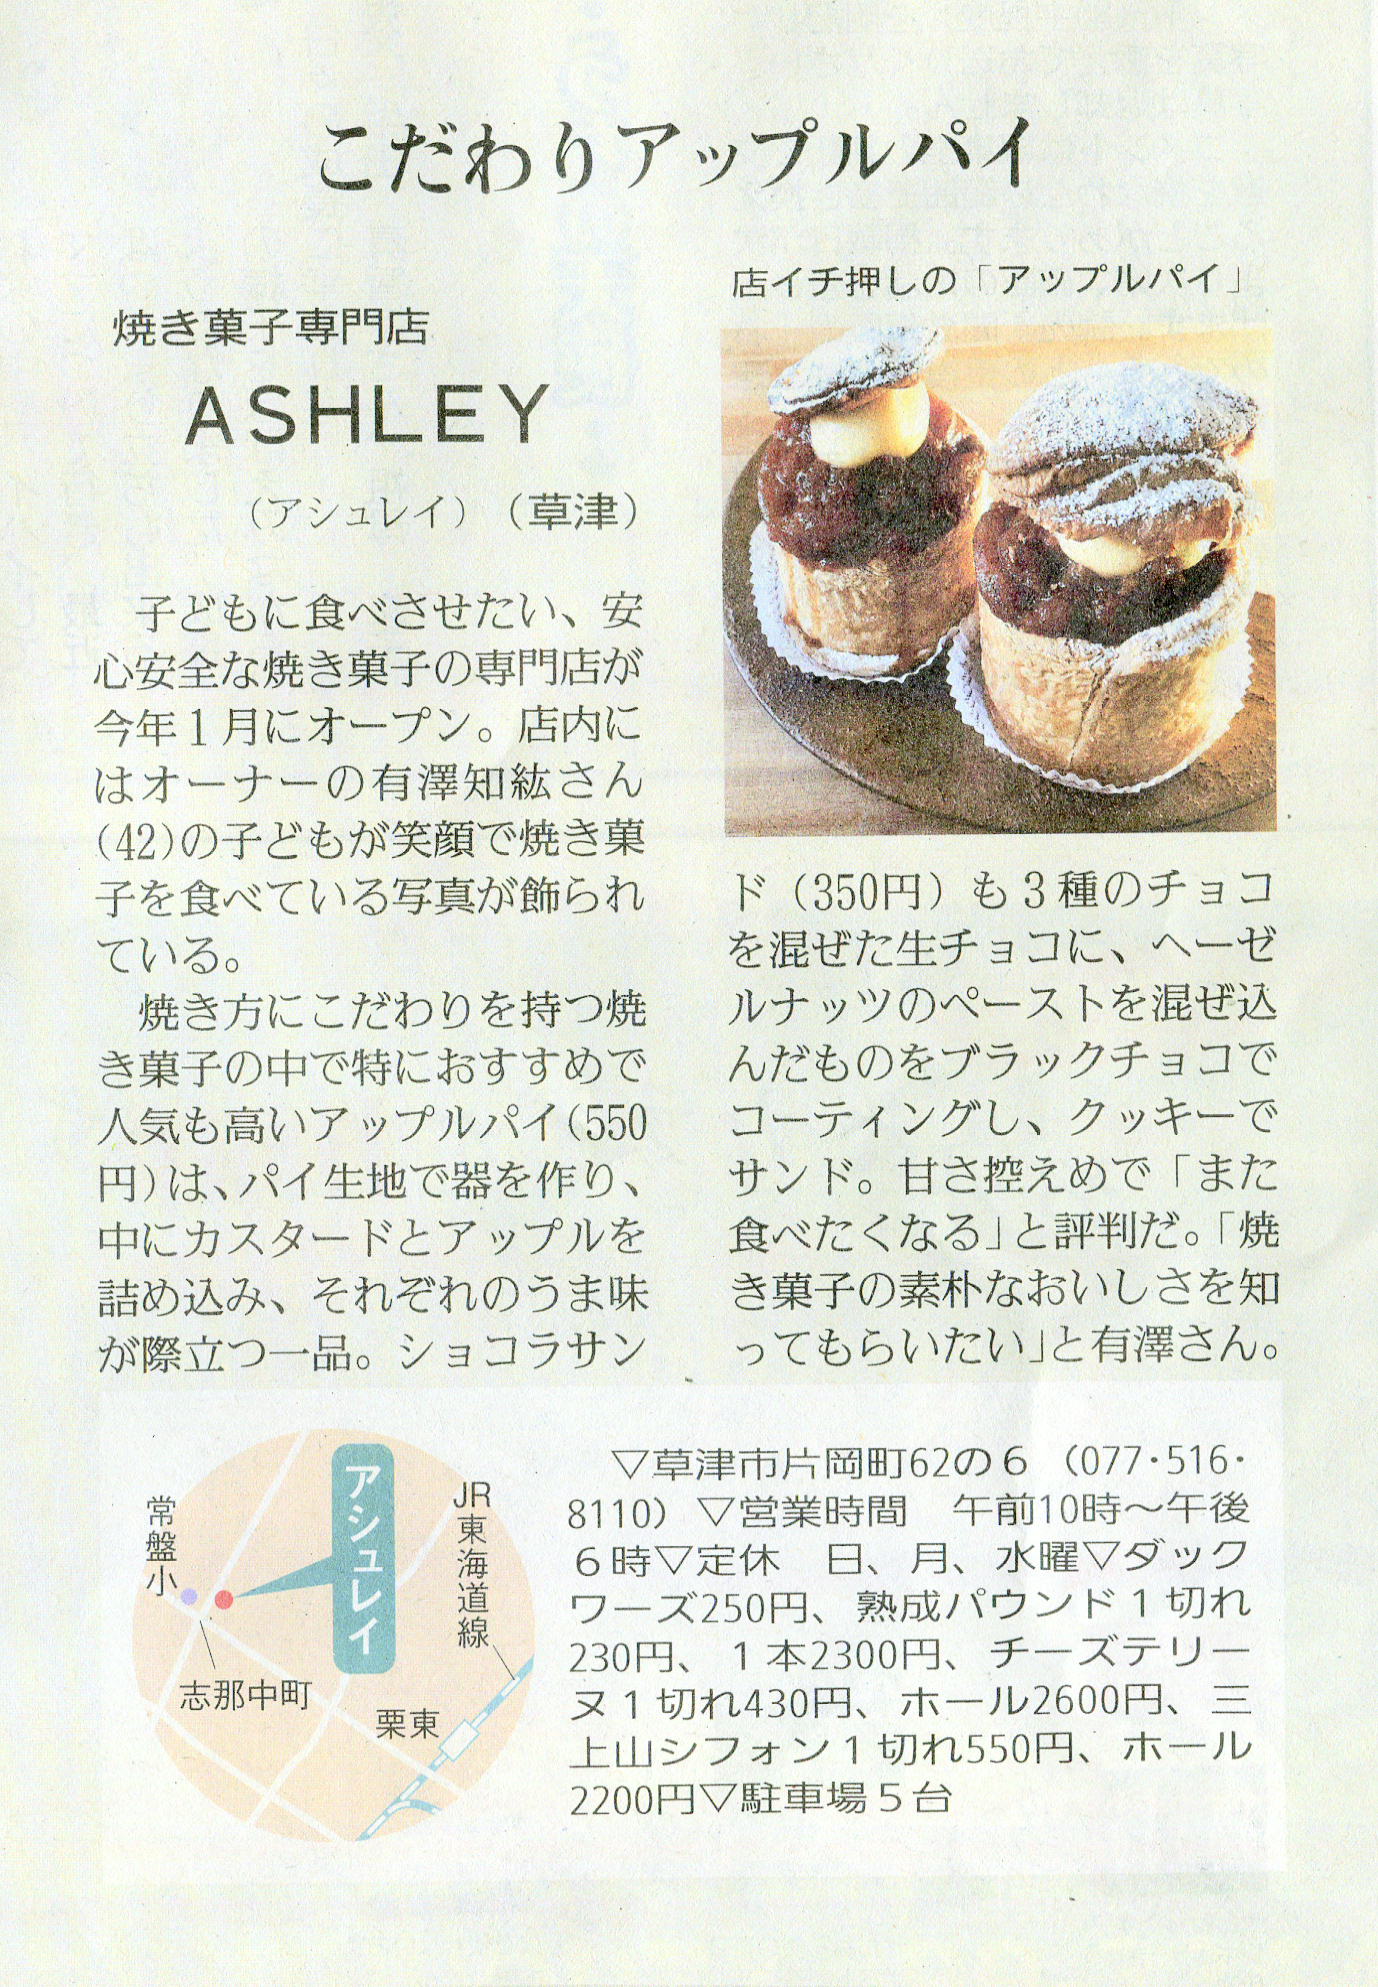 こだわりアップルパイ
焼き菓子専門店
ASHLEY
(アシュレイ) (草津)
店イチ押しの「アップルパイ」
子どもに食べさせたい、安
心安全な焼き菓子の専門店が
今年1月にオープン。店内に
はオーナーの有澤知紘さん
(42)の子どもが笑顔で焼き菓
子を食べている写真が飾られ
ている。
焼き方にこだわりを持つ焼
き菓子の中で特におすすめで
人気も高いアップルパイ(550
円)は、パイ生地で器を作り、
中にカスタードとアップルを
詰め込み、それぞれのうま味
が際立つ一品。ショコラサン
ド(350円)も3種のチョコ
を混ぜた生チョコに、ヘーゼ
ルナッツのペーストを混ぜ込
んだものをブラックチョコで
コーティングし、クッキーで
サンド。甘さ控えめで「また
食べたくなる」と評判だ。「焼
き菓子の素朴なおいしさを知
ってもらいたい」と有澤さん。
アシュレイ
常盤小
志那中町
JR東海道線
栗東
▽草津市片岡町62の6 (077・516・
8110)▽営業時間 午前10時~午後
6時▽定休 日、月、水曜▽ダック
ワーズ250円、熟成パウンド1切れ
230円、1本2300円、チーズテリー
ヌ1切れ430円、ホール2600円、三
上山シフォン1切れ550円、ホール
2200円▽駐車場5台